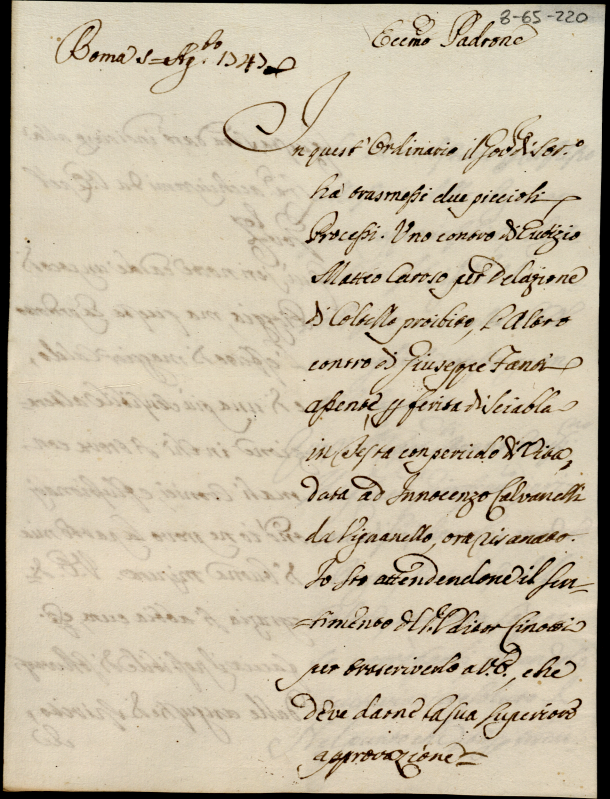 8-65-220
Ecc.mo Padrone
Roma 5 = Ag.bo 1747
In quest'Ordinario il Gov.re di Sor.o
ha trasmessi due piccioli
Processi. Uno contro di Eutizio
Matteo Caroso per delazione
di Coltello proibito, l'Altro
contro di Giuseppe Fanti
assente, per ferita di Sciabla
in Testa con pericolo di Vita,
data ad Innocenzo Calvanelli
da Vignanello, ora risanato.
Io sto attendendone il sen-
timento dell'Uditor Cinotti
per trascriverlo a V.E., che
deve darne la sua superiore
approvazione